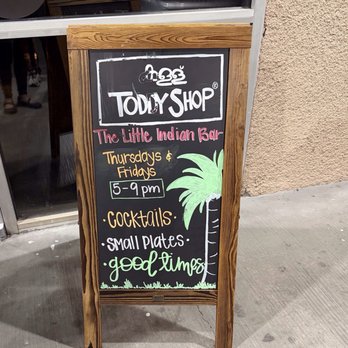 TODDY SHOP®
The Little Indian Bar
Thursdays &
Fridays
5-9 pm
• COCKTAILS •
• SMALL PLATES •
• good times •